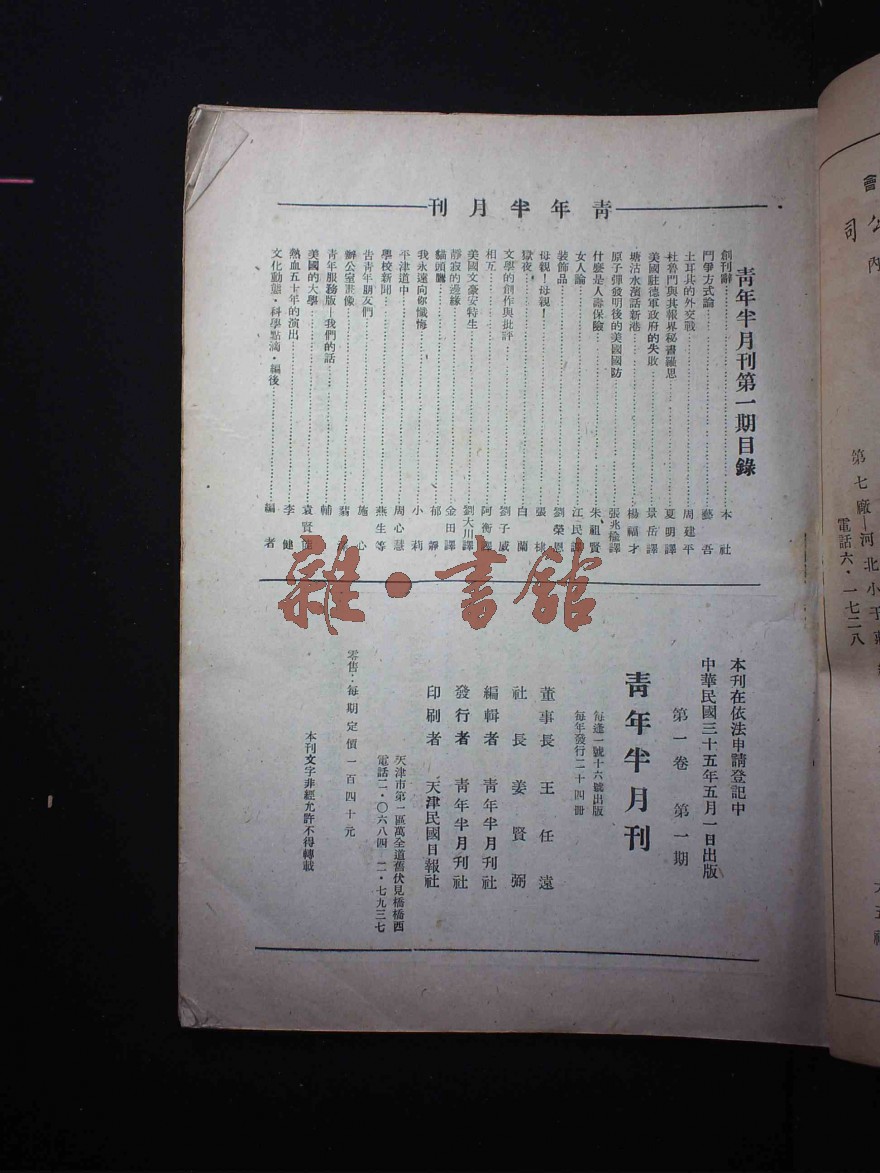 青年半月刊
青年半月刊第一期目錄
創刊辭 本社
鬥爭方式論 藝吾
土耳其的外交戰 周建平
杜魯門與其報界秘書羅思 夏明譯
美國駐德軍政府的失敗 景岳譯
塘沽水濱話新港 楊福才
原子彈發明後的美國國防 張兆㷍譯
什麼是人壽保險 朱祖賢
女人論 江民譯
裝飾品 劉榮恩
母親!母親! 張棣
獄夜 白蘭
文學的創作與批評 劉子威
相互 阿衡譯
美國文豪安特生 劉大川譯
靜寂的邊緣 金田譯
貓頭鷹 郁靜
我永遠向你懺悔 小莉
平津道中 周心慧
學校新聞 燕生等
告青年朋友們 施心
辦公室畫像
青年服務版—我們的話 輔
美國的大學 袁賢能
熱血五十年的演出 李健
文化動態·科學點滴·編後 編者
本刊在依法申請登記中
中華民國三十五年五月一日出版
第一卷 第一期
青年半月刊
每逢一號十六號出版
每年發行二十四冊
董事長 王任遠
社長 姜賢弼
編輯者 青年半月刊社
發行者 青年半月刊社
印刷者 天津民國日報社
天津市第一區萬全道舊伏見橋橋西
電話二·〇六八四 二·七九三七
零售:每期定價一百四十元
本刊文字非經允許不得轉載
雜·書館
會
公司
內
第七廠—河北小于莊
電話六·一七二八